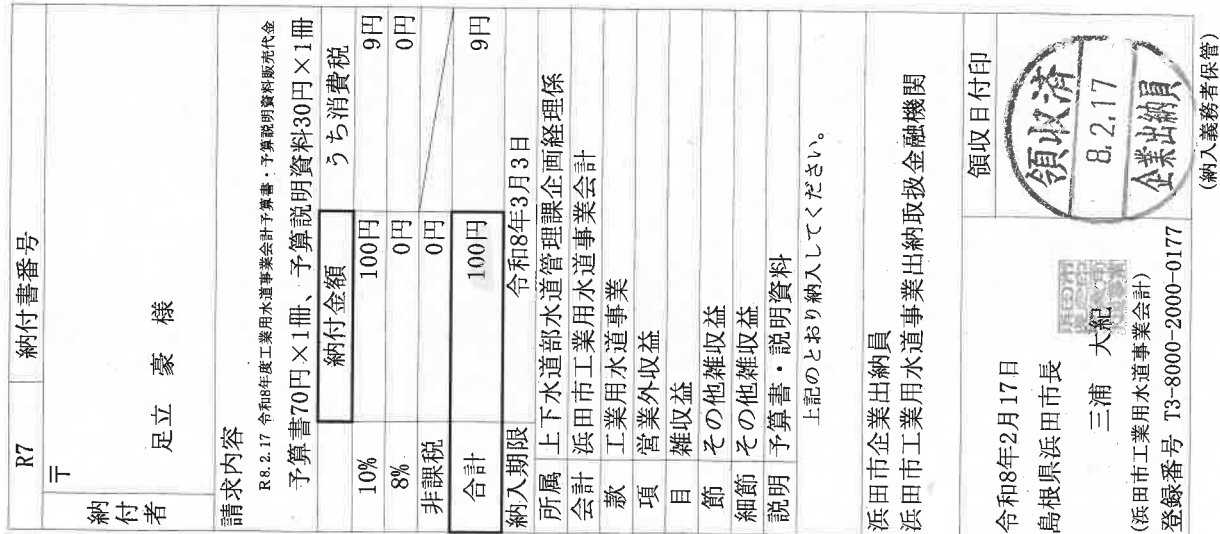 R7 納付書番号
納付者
〒
足立 豪 様
請求内容
R8.2.17 令和8年度工業用水道事業会計予算書・予算説明資料販売代金
予算書70円×1冊、予算説明資料30円×1冊
納付金額 うち消費税
10% 100円 9円
8% 0円 0円
非課税 0円
合計 100円 9円
納入期限 令和8年3月3日
所属 上下水道部水道管理課企画経理係
会計 浜田市工業用水道事業会計
款 工業用水道事業
項 営業外収益
目 雑収益
節 その他雑収益
細節 その他雑収益
説明 予算書・説明資料
上記のとおり納入してください。
浜田市企業出納員
浜田市工業用水道事業出納取扱金融機関
令和8年2月17日
島根県浜田市長
三浦 大紀
(浜田市工業用水道事業会計)
登録番号 T3-8000-2000-0177
領収日付印
領収済
8.2.17
企業出納員
(納入義務者保管)